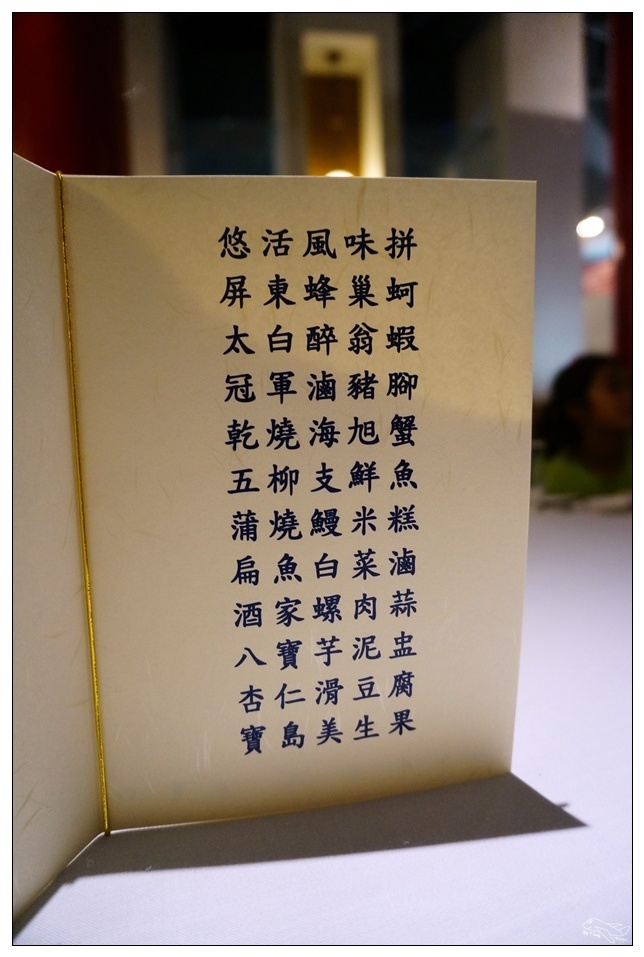 悠活風味拼
屏東蜂巢蚵
太白醉翁蝦
冠軍滷豬腳
乾燒海旭蟹
五柳支鮮魚
蒲燒鰻米糕
扁魚白菜滷
酒家螺肉蒜
八寶芋泥盅
杏仁滑豆腐
寶島美生果